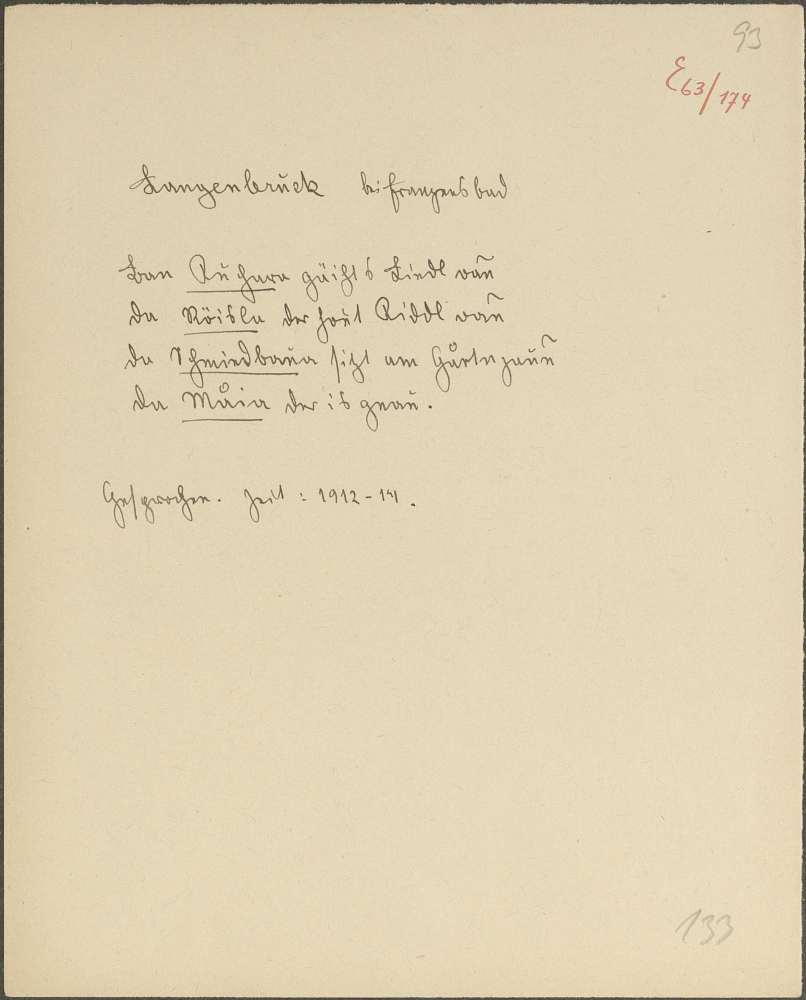 93
E 63/174
Langenbrück bei Franzensbad
Ban Ruhara gäiht's Liedl vañ
da Röisla der hout Riddl vañ
da Schmiedbaua sitzt am Gårtnzauñ
da Måia der is genau.
Gesprochen. Zeit: 1912-14.
133